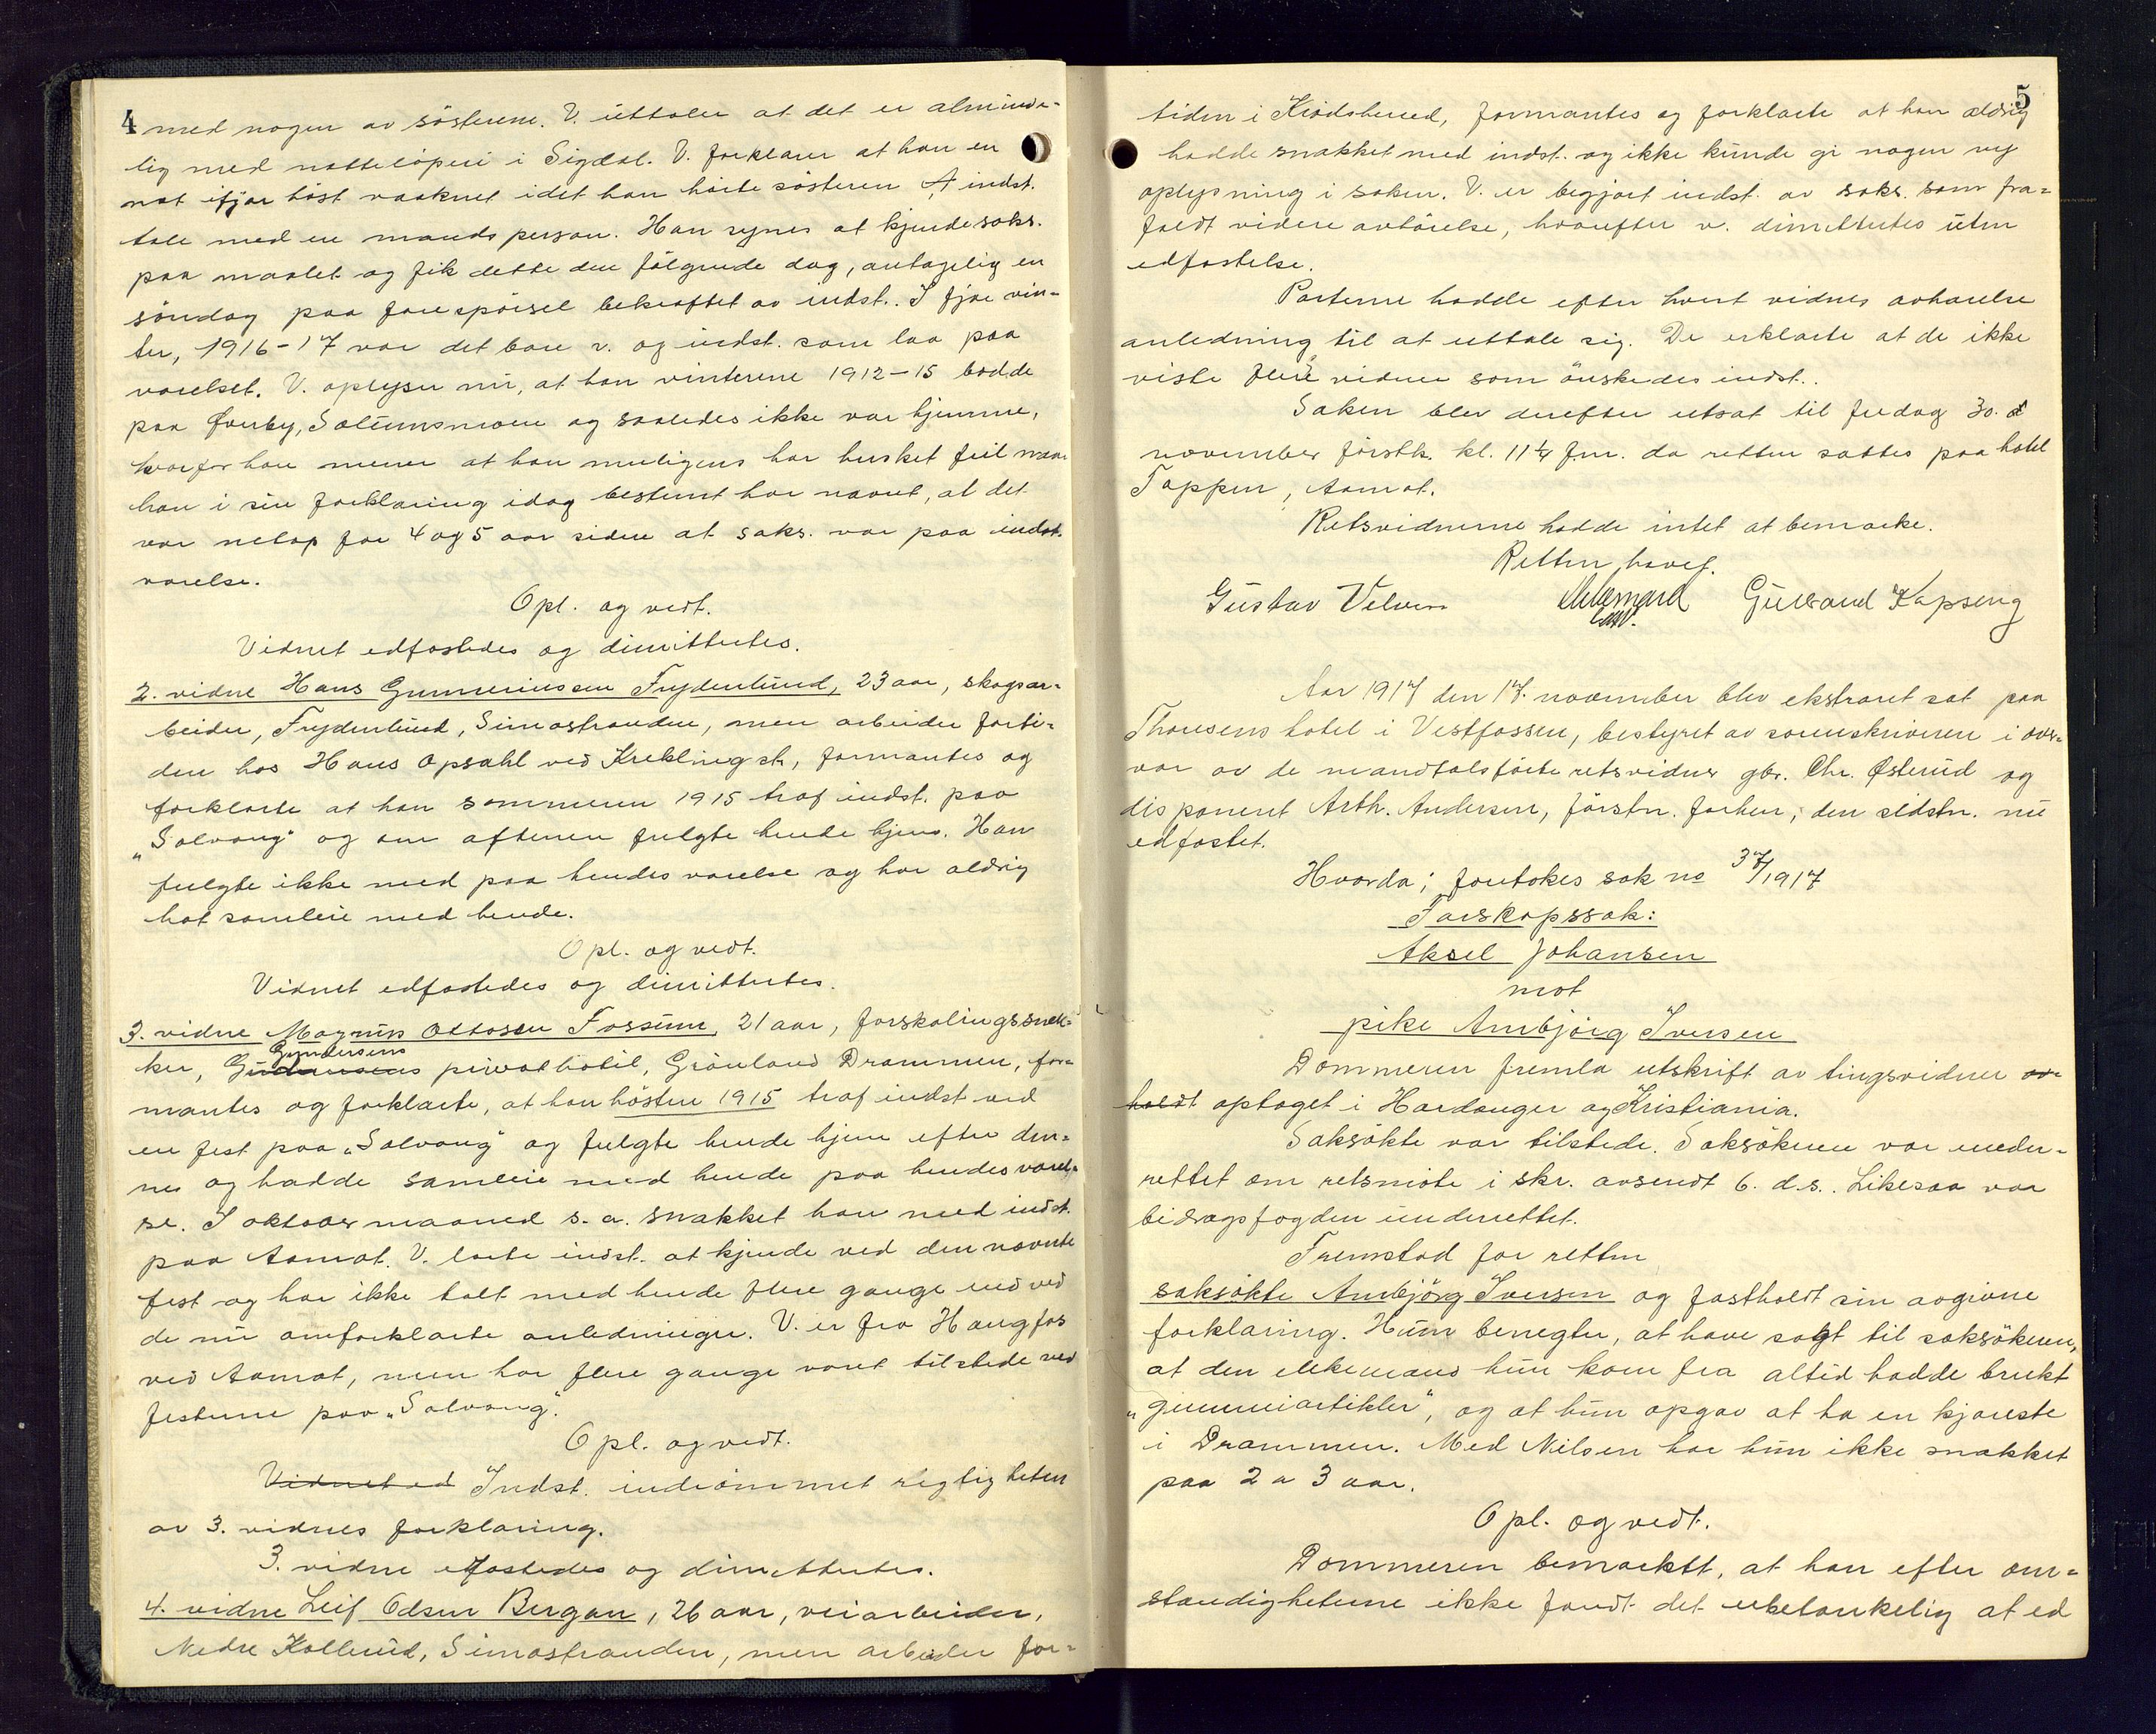 4
med nogen av søstrene. V. uttaler at det er alminde-
lig med natteløperi i Sigdal. V. forklarer at han en
nat ifjor høst vaaknet idet han hørte søsteren A indst.
tale med en mandsperson. Han synes at kjende saks.
paa maalet og fik dette den følgende dag, antagelig en
søndag paa forespørsel bekræftet av indst.. I fjor vin-
ter, 1916-17 var det bare v. og indst. som laa paa
værelset. V. oplyser nu, at han vinterene 1912-15 bodde
paa Øverby, Solumsmoen og saaledes ikke var hjemme,
hvorfor han mener at han muligens har husket feil naar
han i sin forklaring idag bestemt har nævnt, at det
var netop for 4 og 5 aar siden at saks. var paa indst.
værelse.
Opl. og vedt.
Vidnet edfæstedes og dimitteres.
2. vidne Hans Gunneriussen Frydenlund, 23 aar, skogsar-
beider, Frydenlund, Simostranden, men arbeider forti-
den hos Hans Opsahl ved Krekling st, formantes og
forklarte at han sommeren 1915 traf indst. paa
„Solvang" og om aftenen fulgte hende hjem. Han
fulgte ikke med paa hendes værelse og har aldrig
hat samleie med hende.
Opl. og vedt.
Vidnet edfæstedes og dimitteres.
3. vidne Magnus Ottosen Fossum, 21 aar, forskalingssnek-
Gundersens
ker, privathotel, Grønland Drammen, for-
mantes og forklarte, at han høsten 1915 traf indst ved
en fest paa „Solvang" og fulgte hende hjem efter den-
ne og hadde samleie med hende paa hendes værel-
se. I oktober maaned s. a. snakket han med indst.
paa Aamot. V. lærte indst. at kjende ved den nævnte
fest og har ikke talt med hende flere gange end ved
de nu omforklarte anledninger. V. er fra Haugfos
ved Aamot, men har flere gange været tilstede ved
festene paa „Solvang".
Opl. og vedt.
Vidnet ed Indst. indrømmet rigtigheten
av 3. vidnes forklaring.
3. vidne edfæstedes og dimitteres.
4. vidne Leif Odsen Bergan, 26 aar, veiarbeider,
Nedre Kollerud, Simostranden, men arbeider for-
5
tiden i Krødsherred, formantes og forklarte at han aldrig
hadde snakket med indst. og ikke kunde gi nogen ny
oplysning i saken. V. er begjært indst. av saks. som fra-
faldt videre avhørelse, hvorefter v. dimitteres uten
edfæstelse.
Parterne hadde efter hvert vidnes avhørelse
anledning til at uttale sig. De erklærte at de ikke
visste flere vidner som ønskedes indst..
Saken blev derefter utsat til fredag 30. d
november førstk. kl. 11 1/4 f.m. da retten sættes paa hotel
Toppen, Aamot.
Retsvidnerne hadde intet at bemærke.
Retten hævet.
Gustav Gulbrand Kopseng
Aar 1917 den 17. november blev ekstraret sat paa
Thoresens hotel i Vestfossen, bestyret av sorenskriveren i over-
vær av de mandtalsførte retsvidner gbr. Chr. Østerud og
disponent Arth. Andersen, førstn. forhen, den sidstn. nu
edfæstet.
Hvorda; foretokes sak no 37/1917
Farskapssak:
Aksel Johansen
mot
pike Anbjørg Iversen
Dommeren fremla utskrift av tingsvidner av-
holdt optaget i Hardanger og Kristiania.
Saksøkte var tilstede. Saksøkeren var under-
rettet om retsmøte i skr. avsendt 6. d.s.. Likesaa var
bidragsfogden underrettet.
Fremstod for retten
saksøkte Anbjørg Iversen og fastholdt sin avgivne
forklaring. Hun benegter, at have sagt til saksøkeren,
at den elskemand hun kom fra altid hadde brukt
„gummiartikler", og at hun opgav at ha en kjæreste
i Drammen. Med Nilsen har hun ikke snakket
paa 2 a 3 aar.
Opl. og vedt.
Dommeren bemærket, at han efter om-
stændigheterne ikke fandt det ubetænkelig at ed